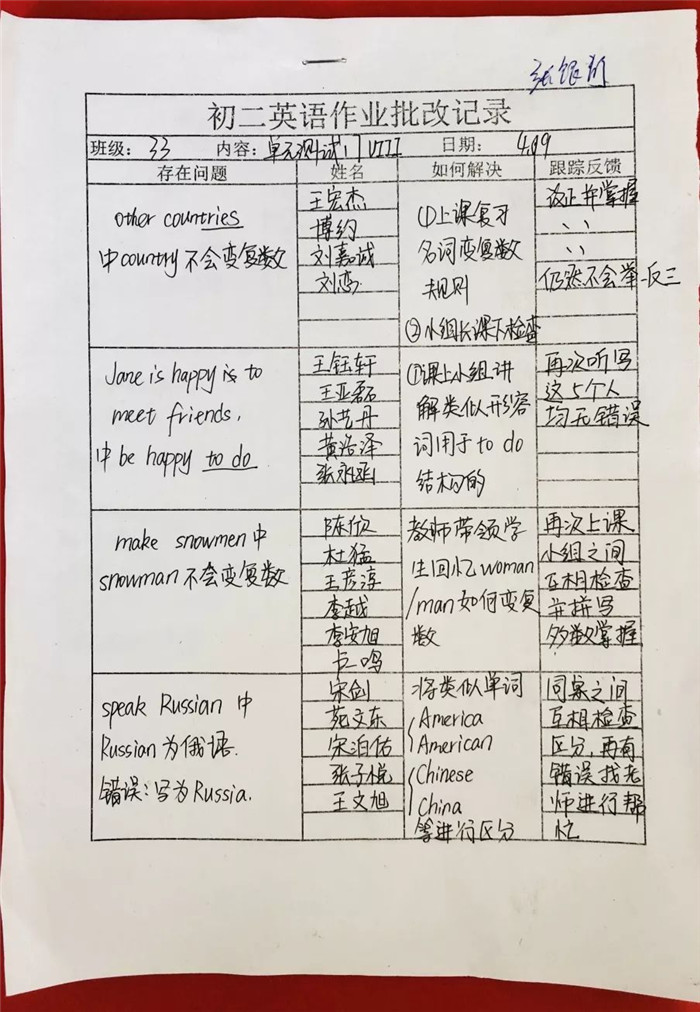 张银利
初二英语作业批改记录
班级：33 内容：单元测试 VIII 日期：4.09
存在问题 姓名 如何解决 跟踪反馈
other countries
中country不会变复数
王宏杰
博约
刘嘉诚
刘恋
①上课复习
名词变复数
规则
②小组长课下检查
改正并掌握
、、
、、
仍然不会举一反三
Jane is happy is to
meet friends,
中 be happy to do
王钰轩
王亚磊
孙艺丹
黄浩泽
①课上小组讲
解类似形容
词用于to do
结构的
再次听写
这5个人
均无错误
make snowmen 中
snowman 不会变复数
陈欣
杜猛
王彦淳
李越
李安旭
一鸣
教师带领学
生回忆woman
/man如何变复
数
再次上课
小组之间
互相检查
并拼写
多数掌握
speak Russian 中
Russian为俄语.
错误：写为Russia.
宋剑
苑文东
宋泊佑
张子悦
王文旭
将类似单词
America
American
Chinese
China
等进行区分
同桌之间
互相检查
区分,再有
错误找老
师进行帮
忙